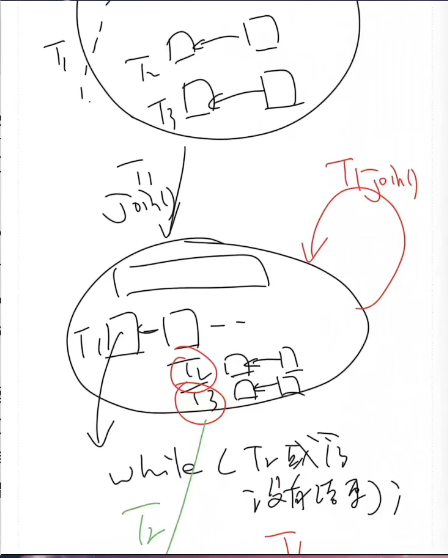 T1
T2
T3
T1
Join()
T1 join()
T1
T2
T3
while (T2或T3
没有结束);
T2
T1